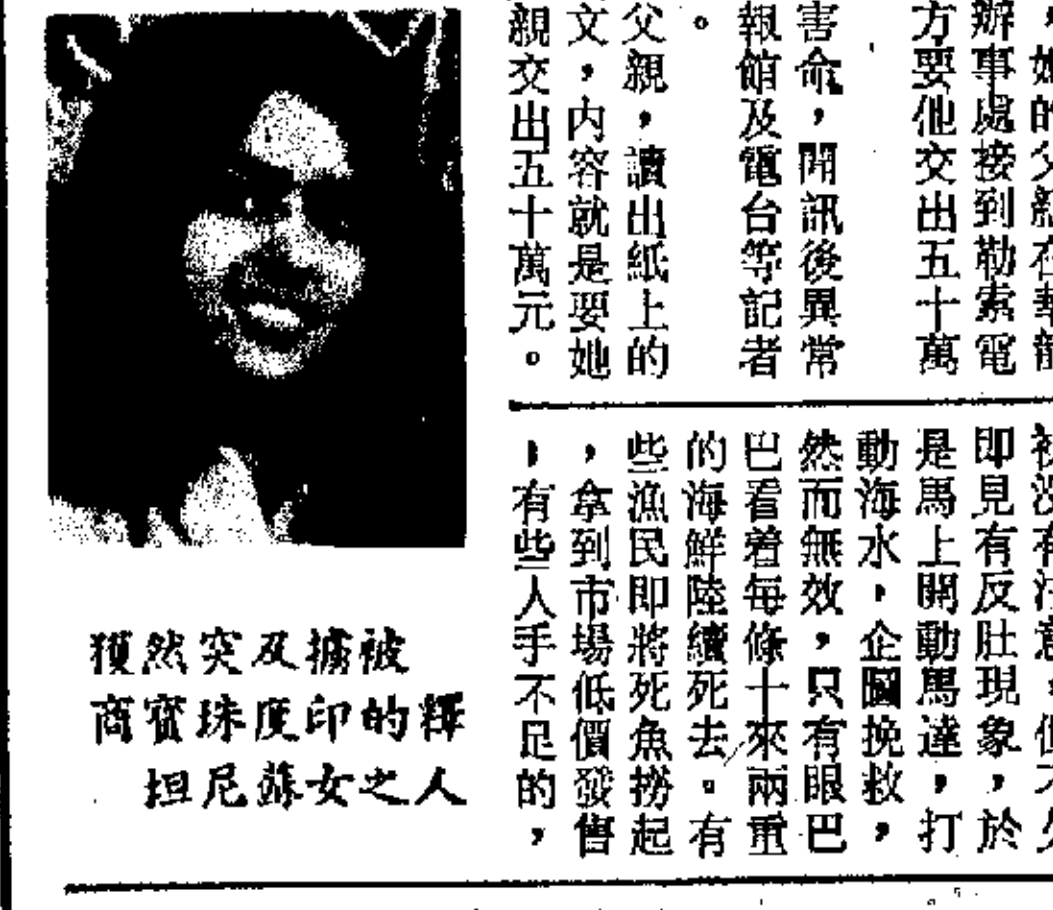 ，她的父親在
辦事處接到勒索電
方要他交出五十萬
害命，聞訊後異常
報館及電台等記者
。
父親，讀出紙上的
文，內容就是要她
親交出五十萬元。
即見有反肚現象，於
是馬上開動馬達，打
動海水，企圖挽救，
然而無效，只有眼巴
巴看着每條十來兩重
的海鮮陸續死去。有
些漁民即將死魚撈起
，拿到市場低價發售
，有些人手不足的，
被擄及突然獲
釋的印度珠寶商
人之女蘇尼坦